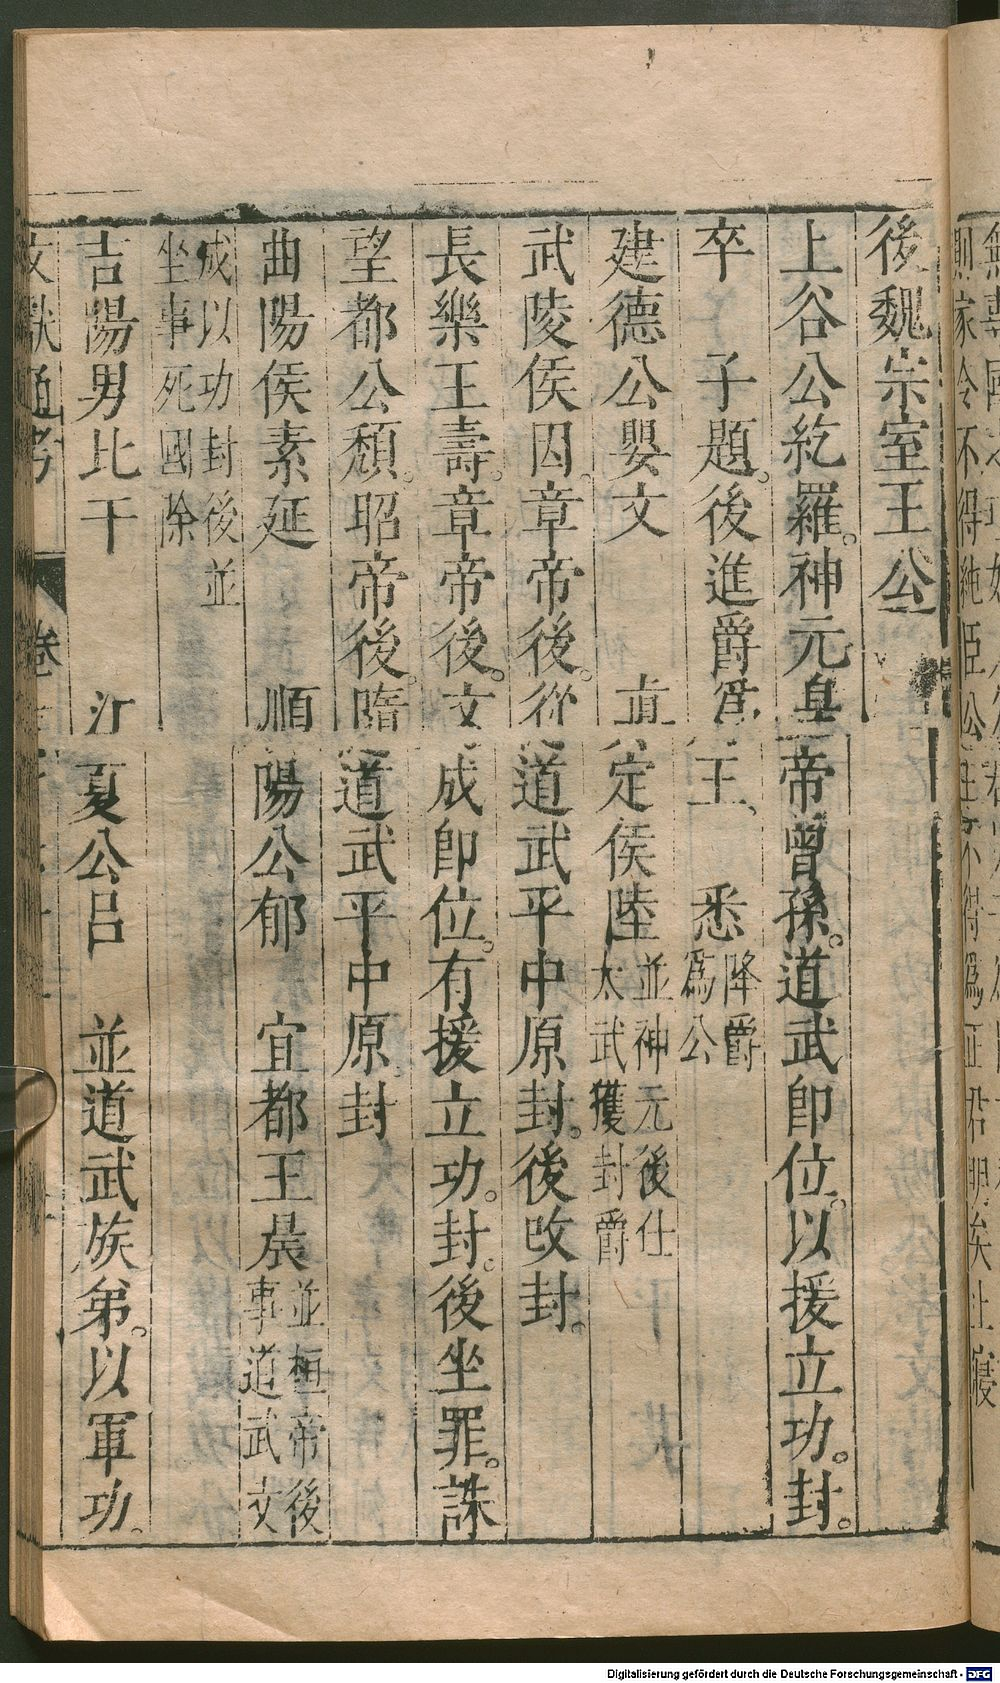 後魏宗室王公
上谷公紇羅。神元皇帝曾孫。道武卽位。以援立功。封。
卒 子題。後進爵爲王、 悉降爵爲公
建德公嬰文 眞定侯陸並神元後仕太武獲封爵
武陵侯因。章帝後。從道武平中原封。後改封。
長樂王壽。章帝後。文成卽位。有援立功。封。後坐罪。誅
望都公頹。昭帝後。隨道武平中原。封
曲陽侯素延 順陽公郁 宜都王晨並桓帝後事道武文
成以功封後並坐事死國除
吉陽男比干 江夏公呂 並道武族弟。以軍功。
文獻通考 卷
Digitalisierung gefördert durch die Deutsche Forschungsgemeinschaft - DFG